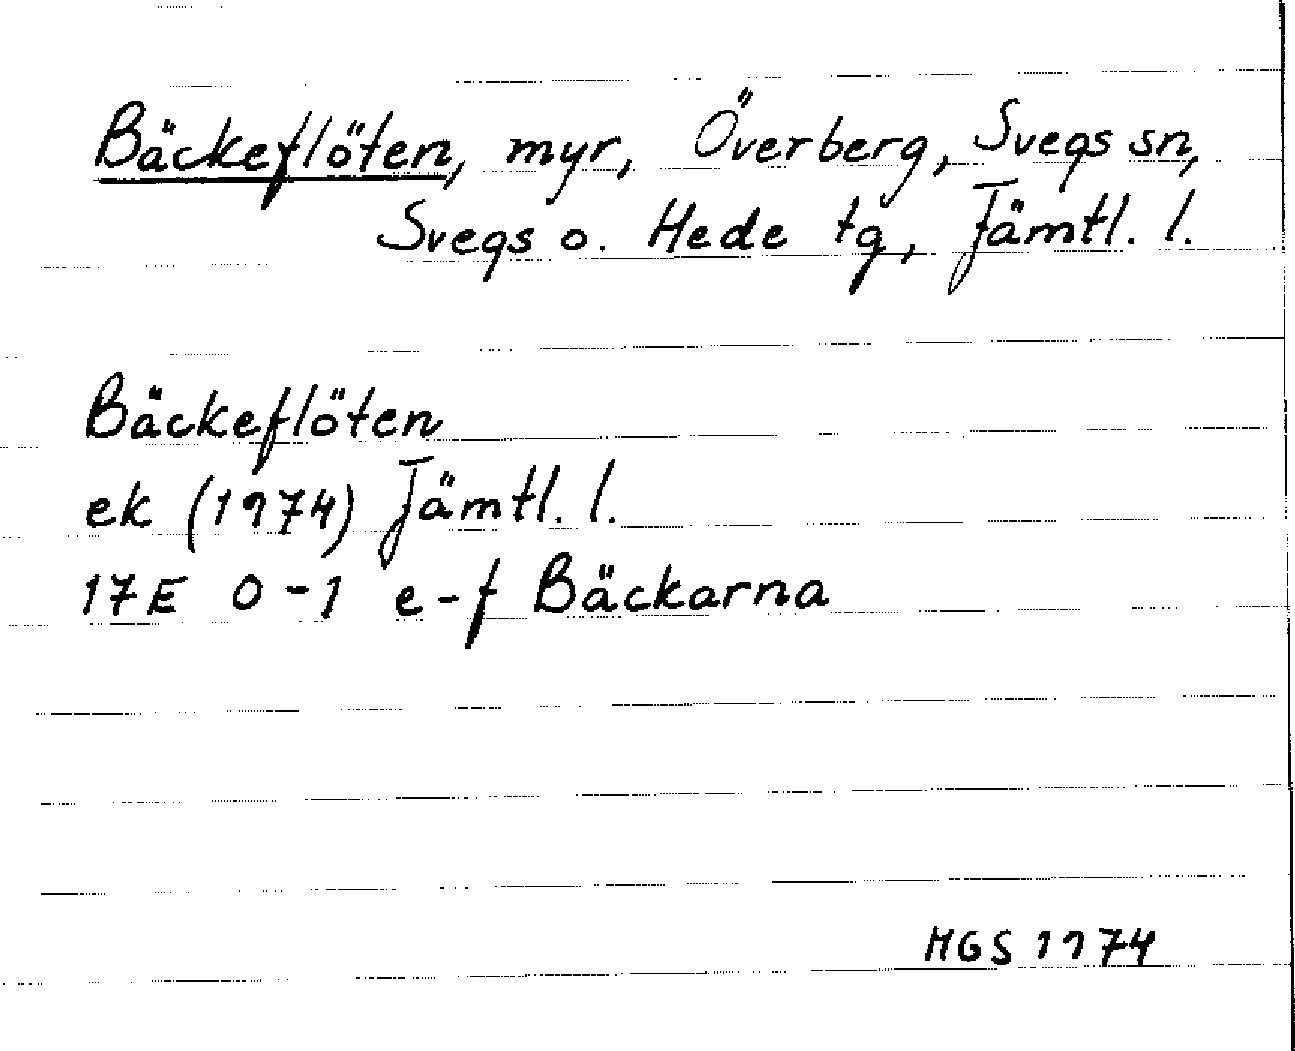 Bäckeflöten, myr, Överberg, Svegs sn,
Svegs o. Hede tg, Jämtl. l.
Bäckeflöten
ek (1974) Jämtl. l.
17E 0-1 e-f Bäckarna
MGS 1974